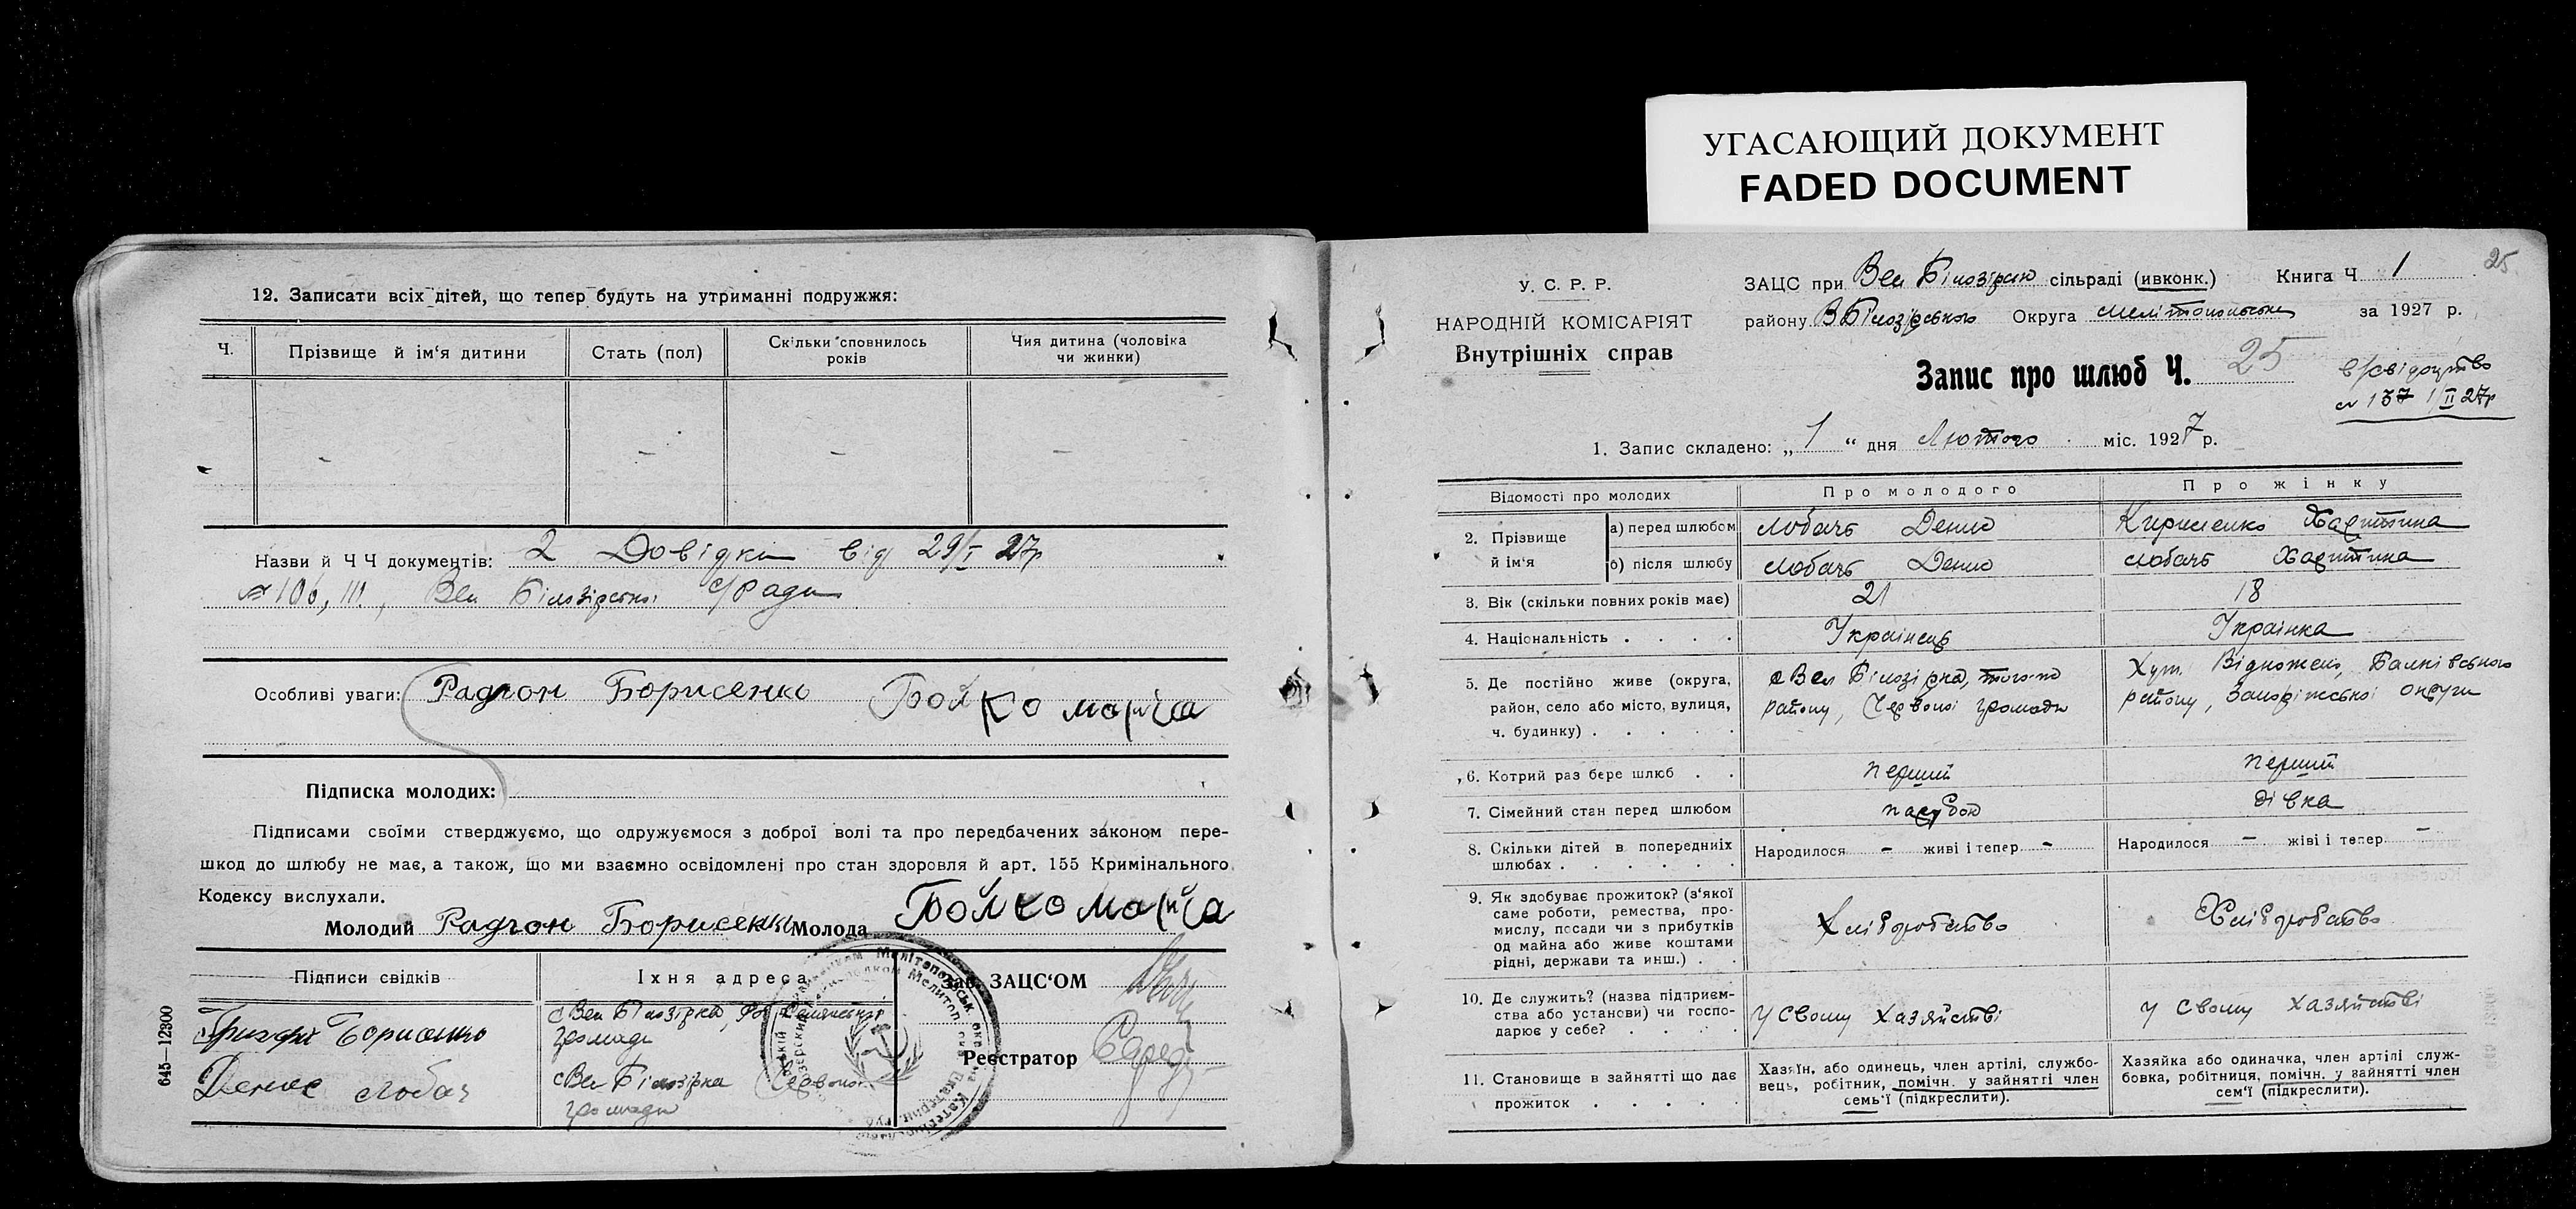 УГАСАЮЩИЙ ДОКУМЕНТ
FADED DOCUMENT
12. Записати всіх дітей, що тепер будуть на утриманні подружжя:
Ч.
Прізвище й ім'я дитини
Стать (пол)
Скільки сповнилось
років
Чия дитина (чоловіка
чи жинки)
- - - -
Назви й Ч Ч документів: 2 Довідки від 29/I 27р
№ 106, 111, Вел Білозірської с/Ради
Особливі уваги: Радион Борисенко Бойко марія
Підписка молодих:
Підписами своїми стверджуємо, що одружуємося з доброї волі та про передбачених законом пере-
шкод до шлюбу не має, а також, що ми взаємно освідомлені про стан здоровля й арт. 155 Кримінального
Кодексу вислухали.
Молодий Радион Борисенко Молода Бойко марія
Підписи свідків
Їхня адреса
Зав. ЗАЦС'ОМ
Борисенко
с Вел Білозірка,
громади
Реєстратор
Денис Лобач
с Вел Білозірка Червоної
громади
645—12300
У. С. Р. Р.
НАРОДНІЙ КОМІСАРІЯТ
Внутрішніх справ
ЗАЦС при Вел Білозірсько сільраді (ивконк.) Книга Ч 1
25
району ВБілозірського Округа Мелітопольська за 1927 р.
Запис про шлюб Ч. 25
в/свідоцтво
№ 137 1/II 27р
1. Запис складено: „ 1 “ дня Лютого міс. 1927 р.
Відомості про молодих
Про молодого
Про жінку
2. Прізвище
й ім'я
а) перед шлюбом
Лобачь Денис
Кириленко Харитина
б) після шлюбу
Лобачь Денис
Лобачь Харитина
3. Вік (скільки повних років має)
21
18
4. Національність . . . .
Українець
Українка
5. Де постійно живе (округа,
район, село або місто, вулиця,
ч. будинку) . . . . .
с Вел Білозірка, того-ж
району, Червоної громади
Хут. Відножено, Балківського
району, Запоріжської округи
6. Котрий раз бере шлюб . .
перший
перший
7. Сімейний стан перед шлюбом
парубок
дівка
8. Скільки дітей в попередниіх
шлюбах . . . . . .
Народилося - живі і тепер -
Народилося - живі і тепер -
9. Як здобуває прожиток? (з'якої
саме роботи, ремества, про-
мислу, посади чи з прибутків
од майна або живе коштами
рідні, держави та инш.) . .
Хліборобство
Хліборобство
10. Де служить? (назва підприєм-
ства або установи) чи госпо-
дарює у себе? . . . .
У Своєму Хазяйстві
У Своєму Хазяйстві
11. Становище в зайнятті що дає
прожиток . . . . .
Хазяїн. або одинець, член артілі, службо-
вець, робітник, помічн. у зайнятті член
семь'ї (підкреслити).
Хазяйка або одиначка, член артілі служ-
бовка, робітниця, помічн. у зайнятті член
сем'ї (підкреслити).